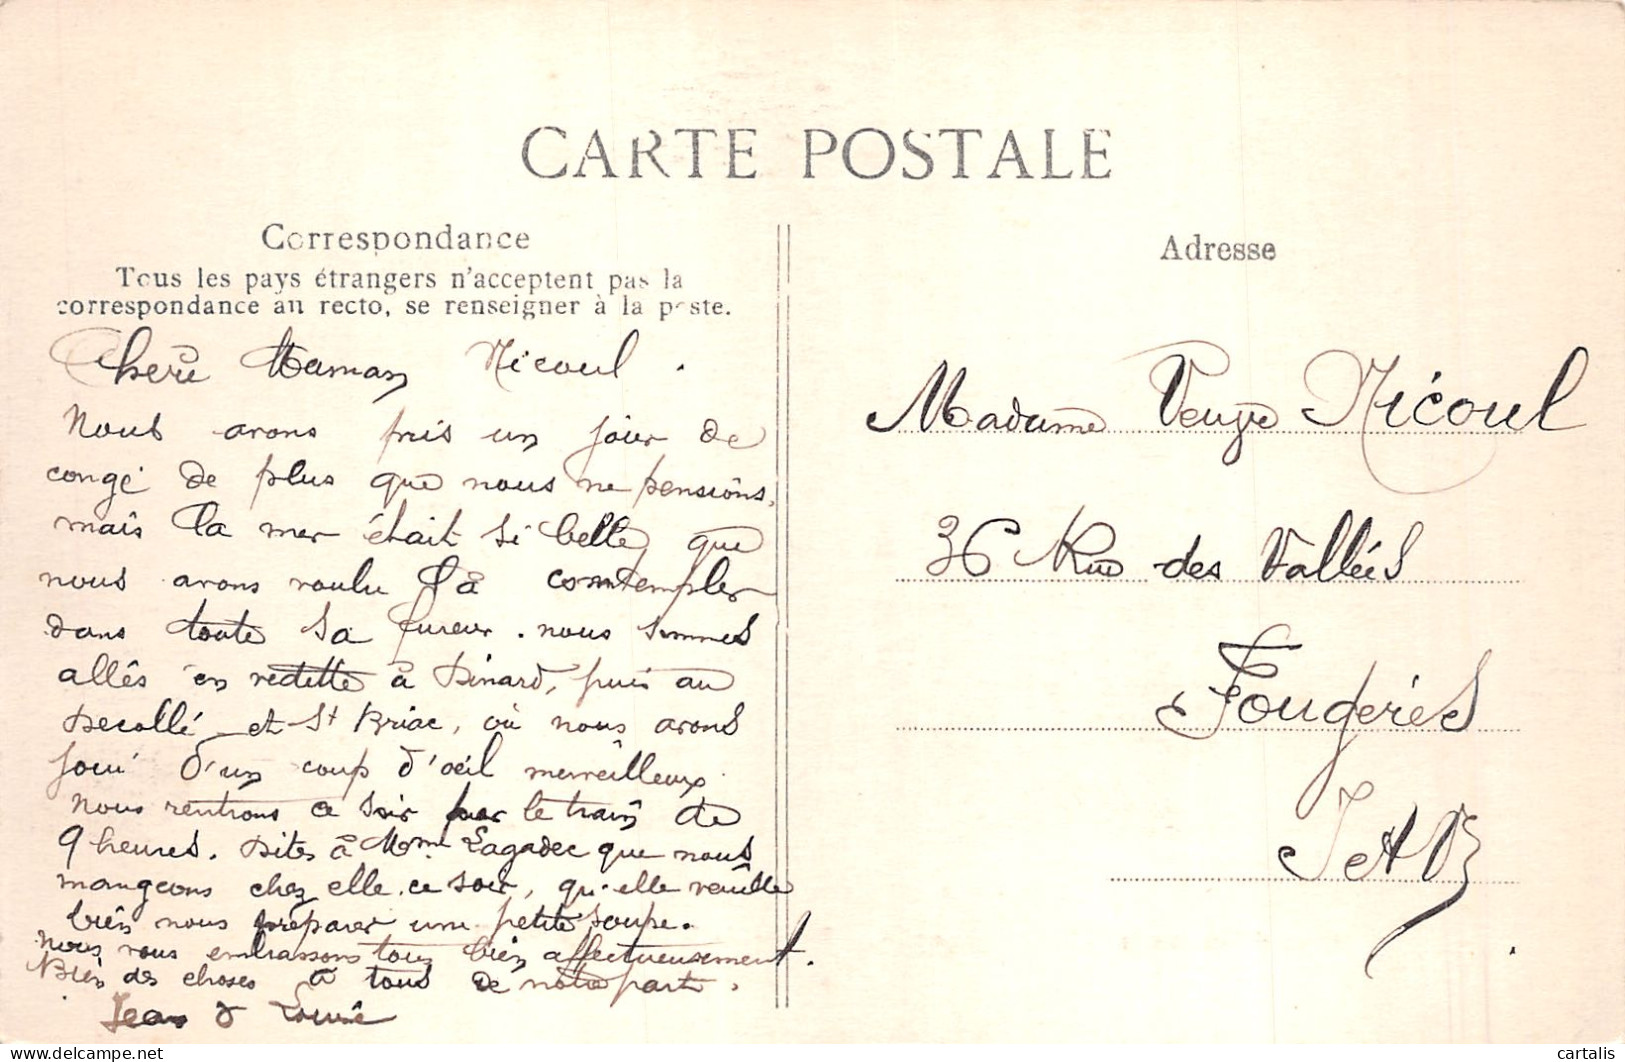 CARTE POSTALE
Correspondance
Tous les pays étrangers n'acceptent pas la
correspondance au recto, se renseigner à la poste.
Chère Maman Nicoul.
Nous avons pris un jour de
congé de plus que nous ne pensions,
mais la mer était si belle que
nous avons voulu la comtempler
dans toute sa fureur. nous sommes
allés en vedette à Dinard, puis au
Decollé et St Briac, où nous avons
joui d'un coup d'œil merveilleux.
Nous rentrons ce soir par le train de
9 heures. Dites à Mme Lagadec que nous
mangeons chez elle ce soir, qu'elle veuille
bien nous préparer une petite soupe.
Nous vous embrassons tous bien affectueusement.
Bien des choses à tous de notre part.
Jean & Louise
Adresse
Madame Veuve Nicoul
36 Rue des Vallées
Fougères
I et V
cartalis
delcampe.net